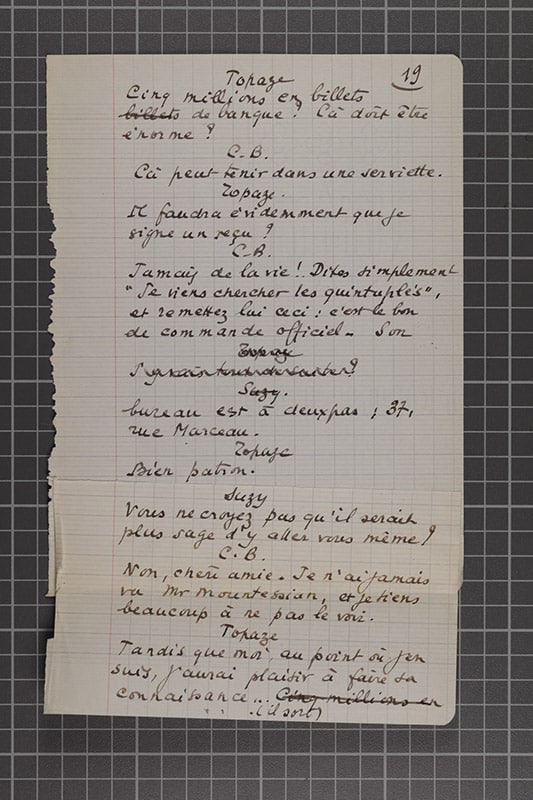 19
Topaze
Cinq millions en billets
billets de banque ? Cà doit être
énorme ?
C.B.
Cà peut tenir dans une serviette.
Topaze.
Il faudra évidemment que je
signe un reçu ?
C.B.
Jamais de la vie ! Dites simplement
"Je viens chercher les quintuplés",
et remettez lui ceci : c'est le bon
de commande officiel. Son
Topaze
J'y vais tout de suite ?
Suzy.
bureau est à deux pas ; 37,
rue Marceau.
Topaze
Bien patron.
Suzy
Vous ne croyez pas qu'il serait
plus sage d'y aller vous même ?
C.B.
Non, chère amie. Je n'ai jamais
vu Mr Mountessian, et je tiens
beaucoup à ne pas le voir.
Topaze
Tandis que moi, au point où j'en
suis, j'aurai plaisir à faire sa
connaissance... Cinq millions en
(il sort)